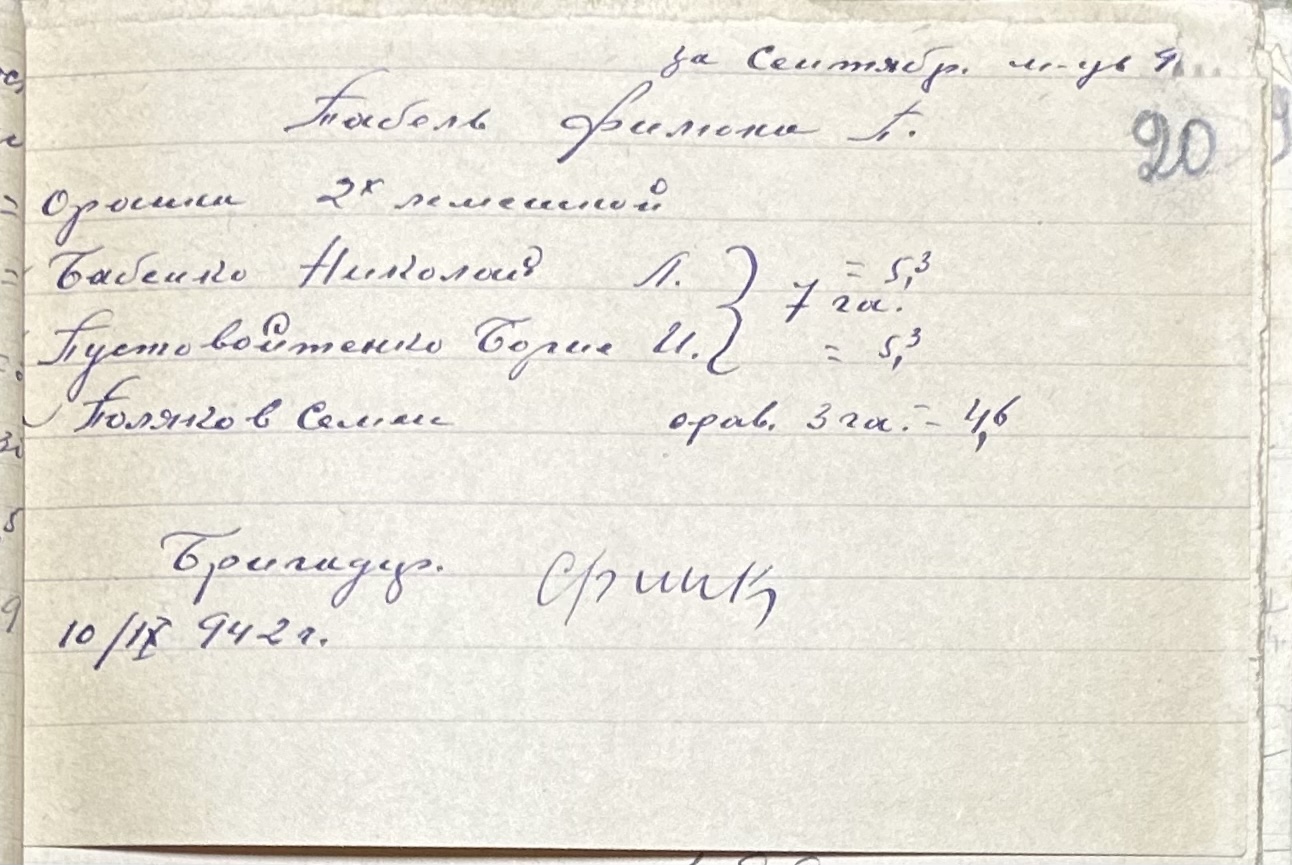 за Сентябр. м-ць 9
20
Табель Филона П.
Орошки 2х лемешной
Бабенко Николай Л. = 5,3
7 га.
Пустовойтенко Борис И. = 5,3
Поляков Семен орав. 3 га. = 4,6
Бригадир. Финк
10/IX 942 г.